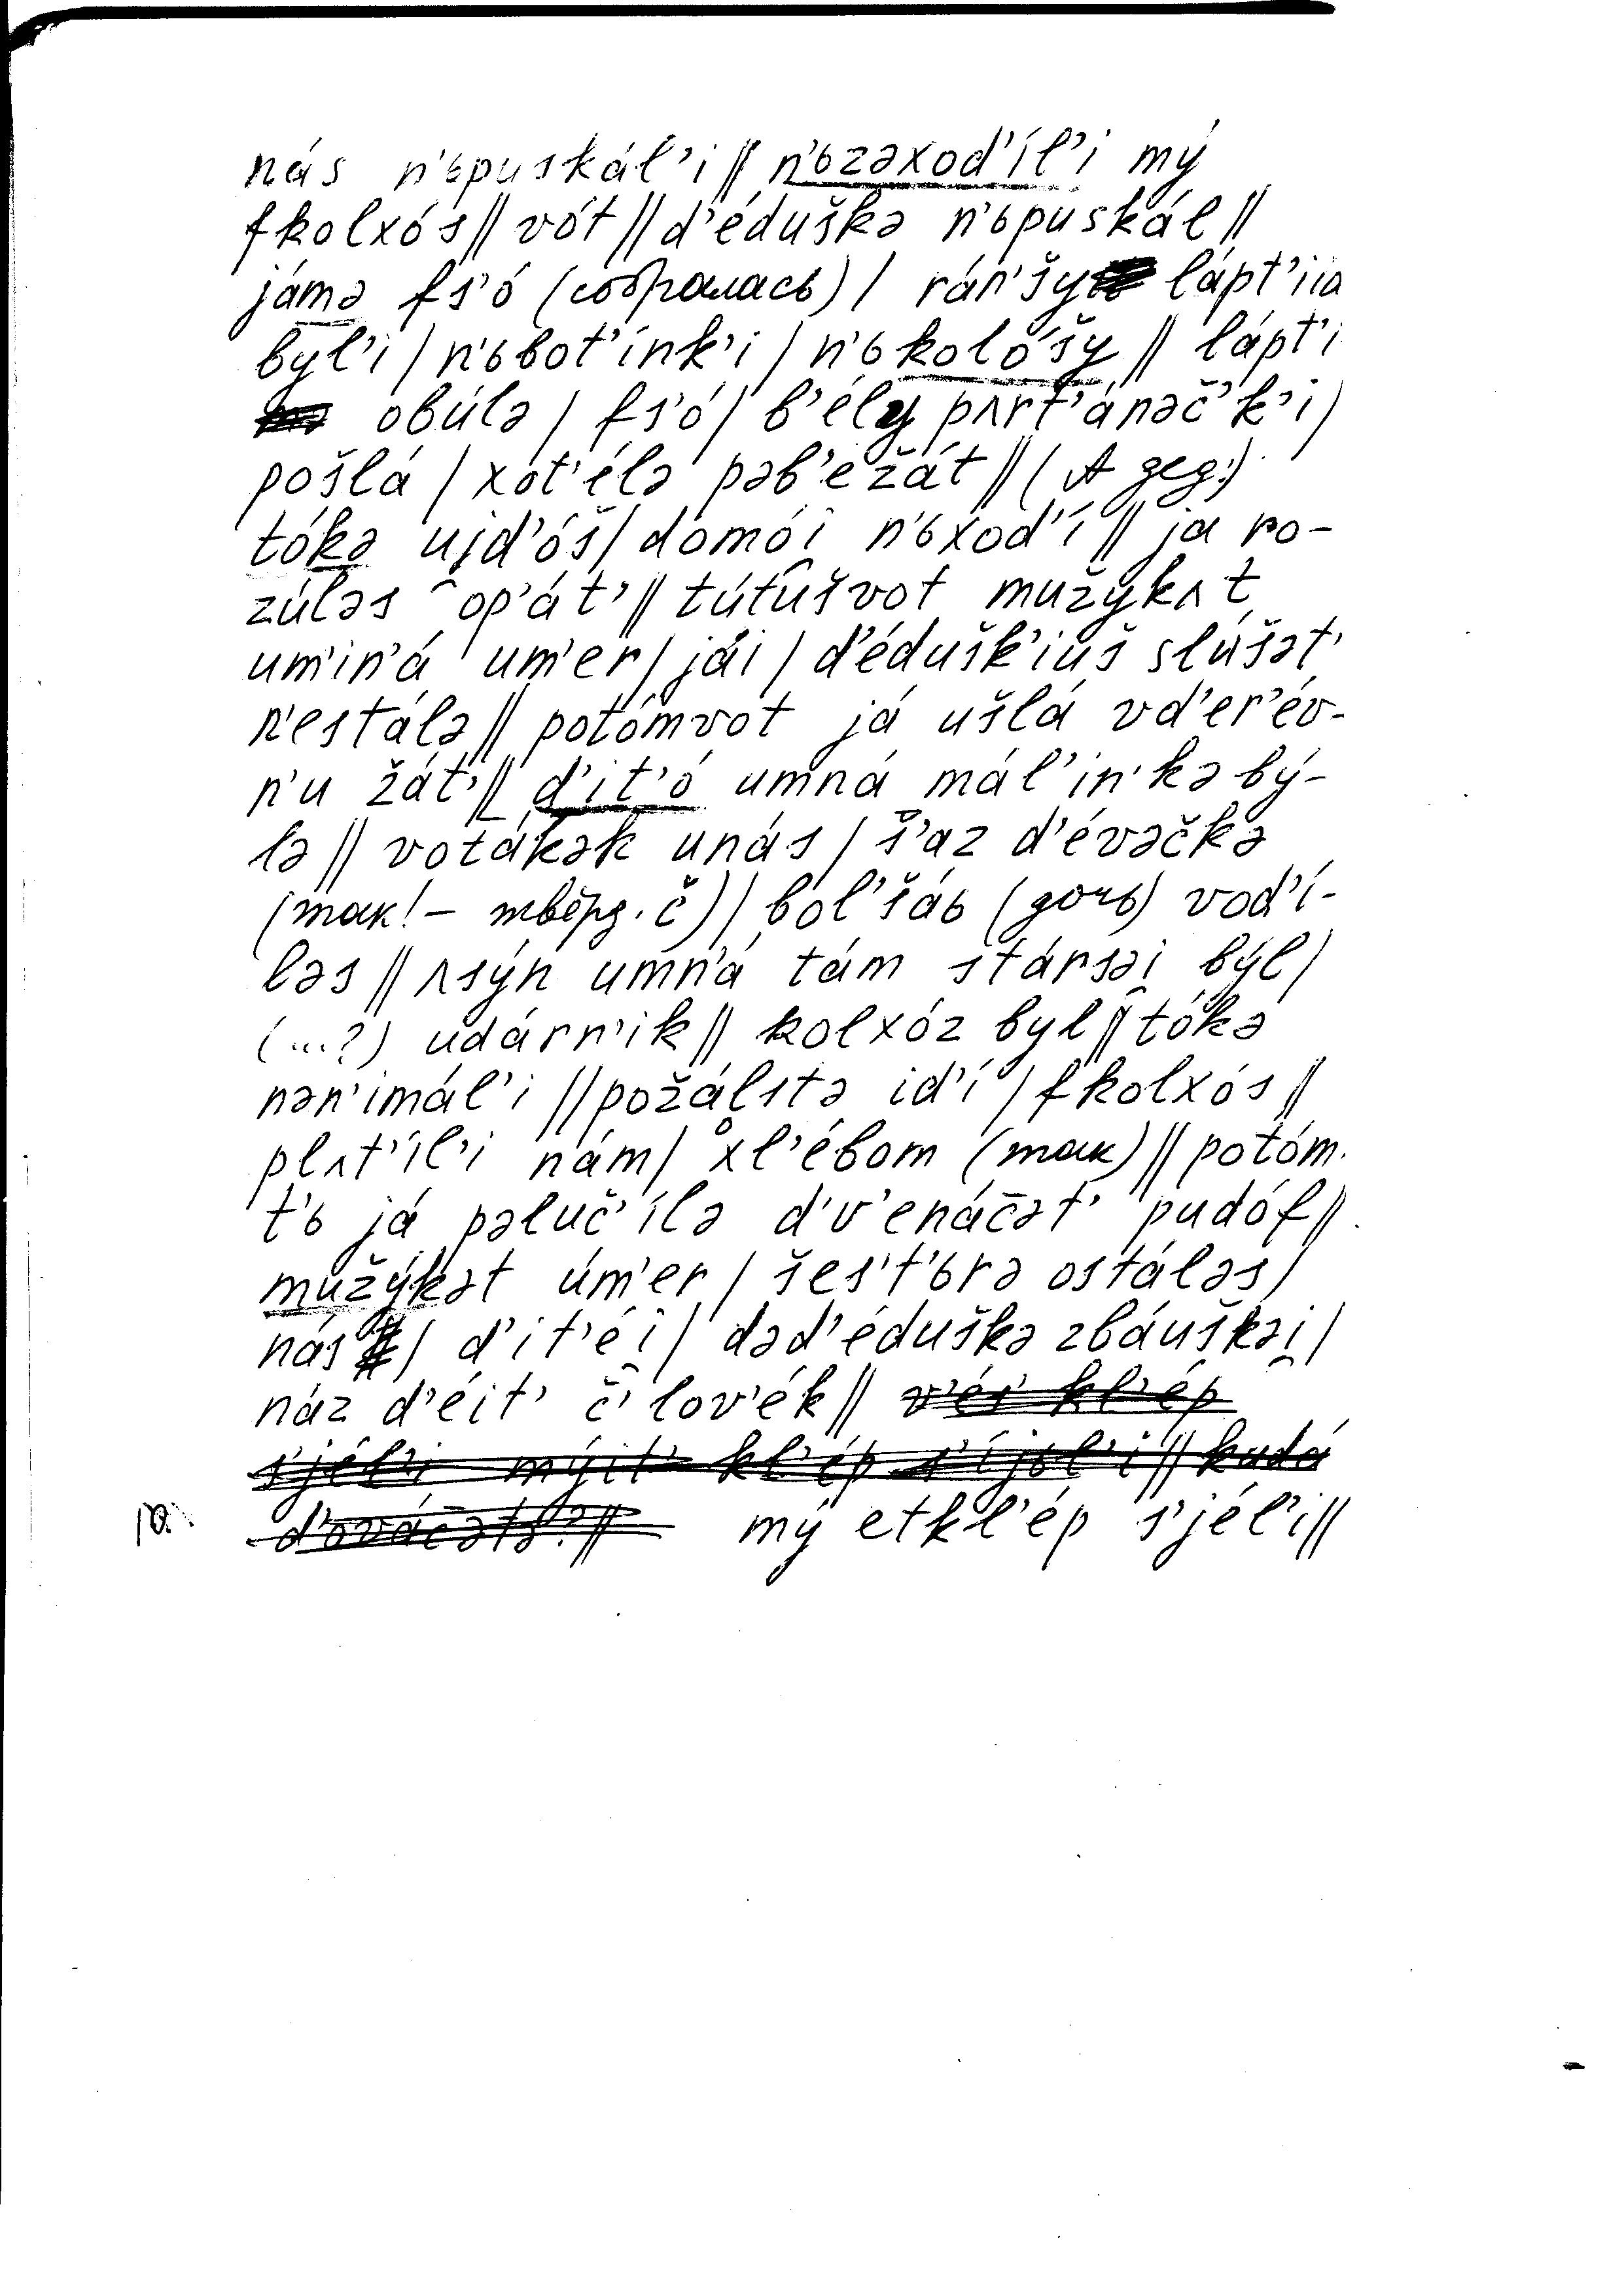 nás n'ьpuskál'i || n'ьzəxod'íl'i mý
fkolxós || vót || d'éduškə n'ьpuskál ||
jámə fs'ó (собралась) / rán'šy lápt'iia
byl'i / n'ьbot'ínk'i / n'ькolóšy || lápt'i
obúlə / fs'ó / b'ély pʌrt'ánəč'k'i /
pošlá / xot'élə pəb'ežát || (А дед:)
tókə ujd'óš / domói̯ n'ьxod'í || ja ro-
zúləs op'át' || tútu̯švot mužykʌt
um'in'á um'er / jái / d'édušk'iuš slúšət'
n'estálə || potómvot já ušlá vd'er'év-
n'u žát' || d'it'ó umná mál'in'kə bý-
lə || votákək unás / š'az d'évəčkə
(так! – твёрд. č) / bol'šáь (дочь) vod'í-
ləs || ʌsýn umn'á tám stársəi̯ býl /
(...?) udárn'ik || kolxóz byl || tókə
nən'imál'i || požálstə id'í / fkolxós ||
plʌt'íl'i nám / xl'ébom (так) || potóm
t'ь já pəluč'ílə d'v'enáčət' pudóf ||
mužýkət úm'er / šes't'ьrə ostáləs /
nás / d'it'éi̯ / dəd'éduškə zbáuškəi̯ /
náz d'éit' č'lov'ék || v'és' kl'ép
s'jél'i mýit' kl'ép s'íjol'i || kudá
d'ováčətə? || mý etkl'ép s'jél'i ||